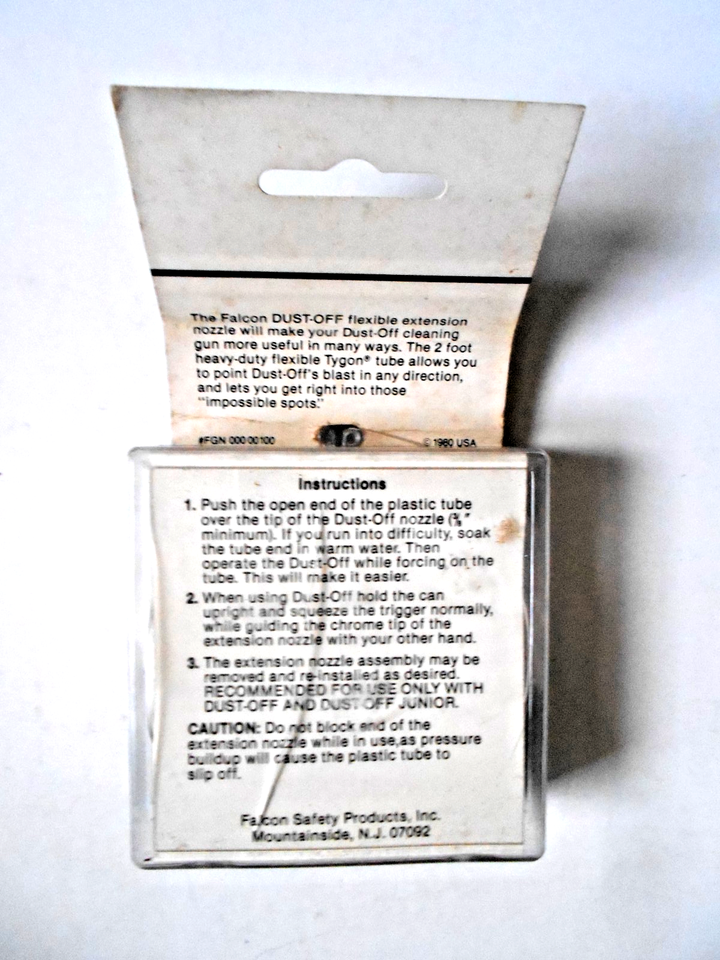 The Falcon DUST-OFF flexible extension
nozzle will make your Dust-Off cleaning
gun more useful in many ways. The 2 foot
heavy-duty flexible Tygon® tube allows you
to point Dust-Off's blast in any direction,
and lets you get right into those
"impossible spots."
#FGN 000 00100
© 1980 USA
Instructions
1. Push the open end of the plastic tube
over the tip of the Dust-Off nozzle (
minimum). If you run into difficulty, soak
the tube end in warm water. Then
operate the Dust-Off while forcing on the
tube. This will make it easier.
2. When using Dust-Off hold the can
upright and squeeze the trigger normally,
while guiding the chrome tip of the
extension nozzle with your other hand.
3. The extension nozzle assembly may be
removed and re-installed as desired.
RECOMMENDED FOR USE ONLY WITH
DUST-OFF AND DUST-OFF JUNIOR.
CAUTION: Do not block end of the
extension nozzle while in use,as pressure
buildup will cause the plastic tube to
slip off.
Falcon Safety Products, Inc.
Mountainside, N.J. 07092